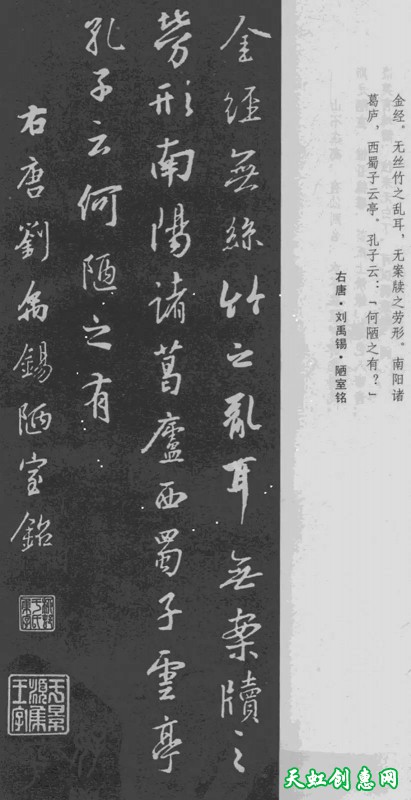 金经。无丝竹之乱耳，无案牍之劳形。南阳诸
葛庐，西蜀子云亭。孔子云：「何陋之有？」
右唐·刘禹锡·陋室铭
金經無絲竹之亂耳無案牘之
勞形南陽諸葛廬西蜀子雲亭
孔子云何陋之有
右唐劉禹錫陋室銘
天虹创惠网